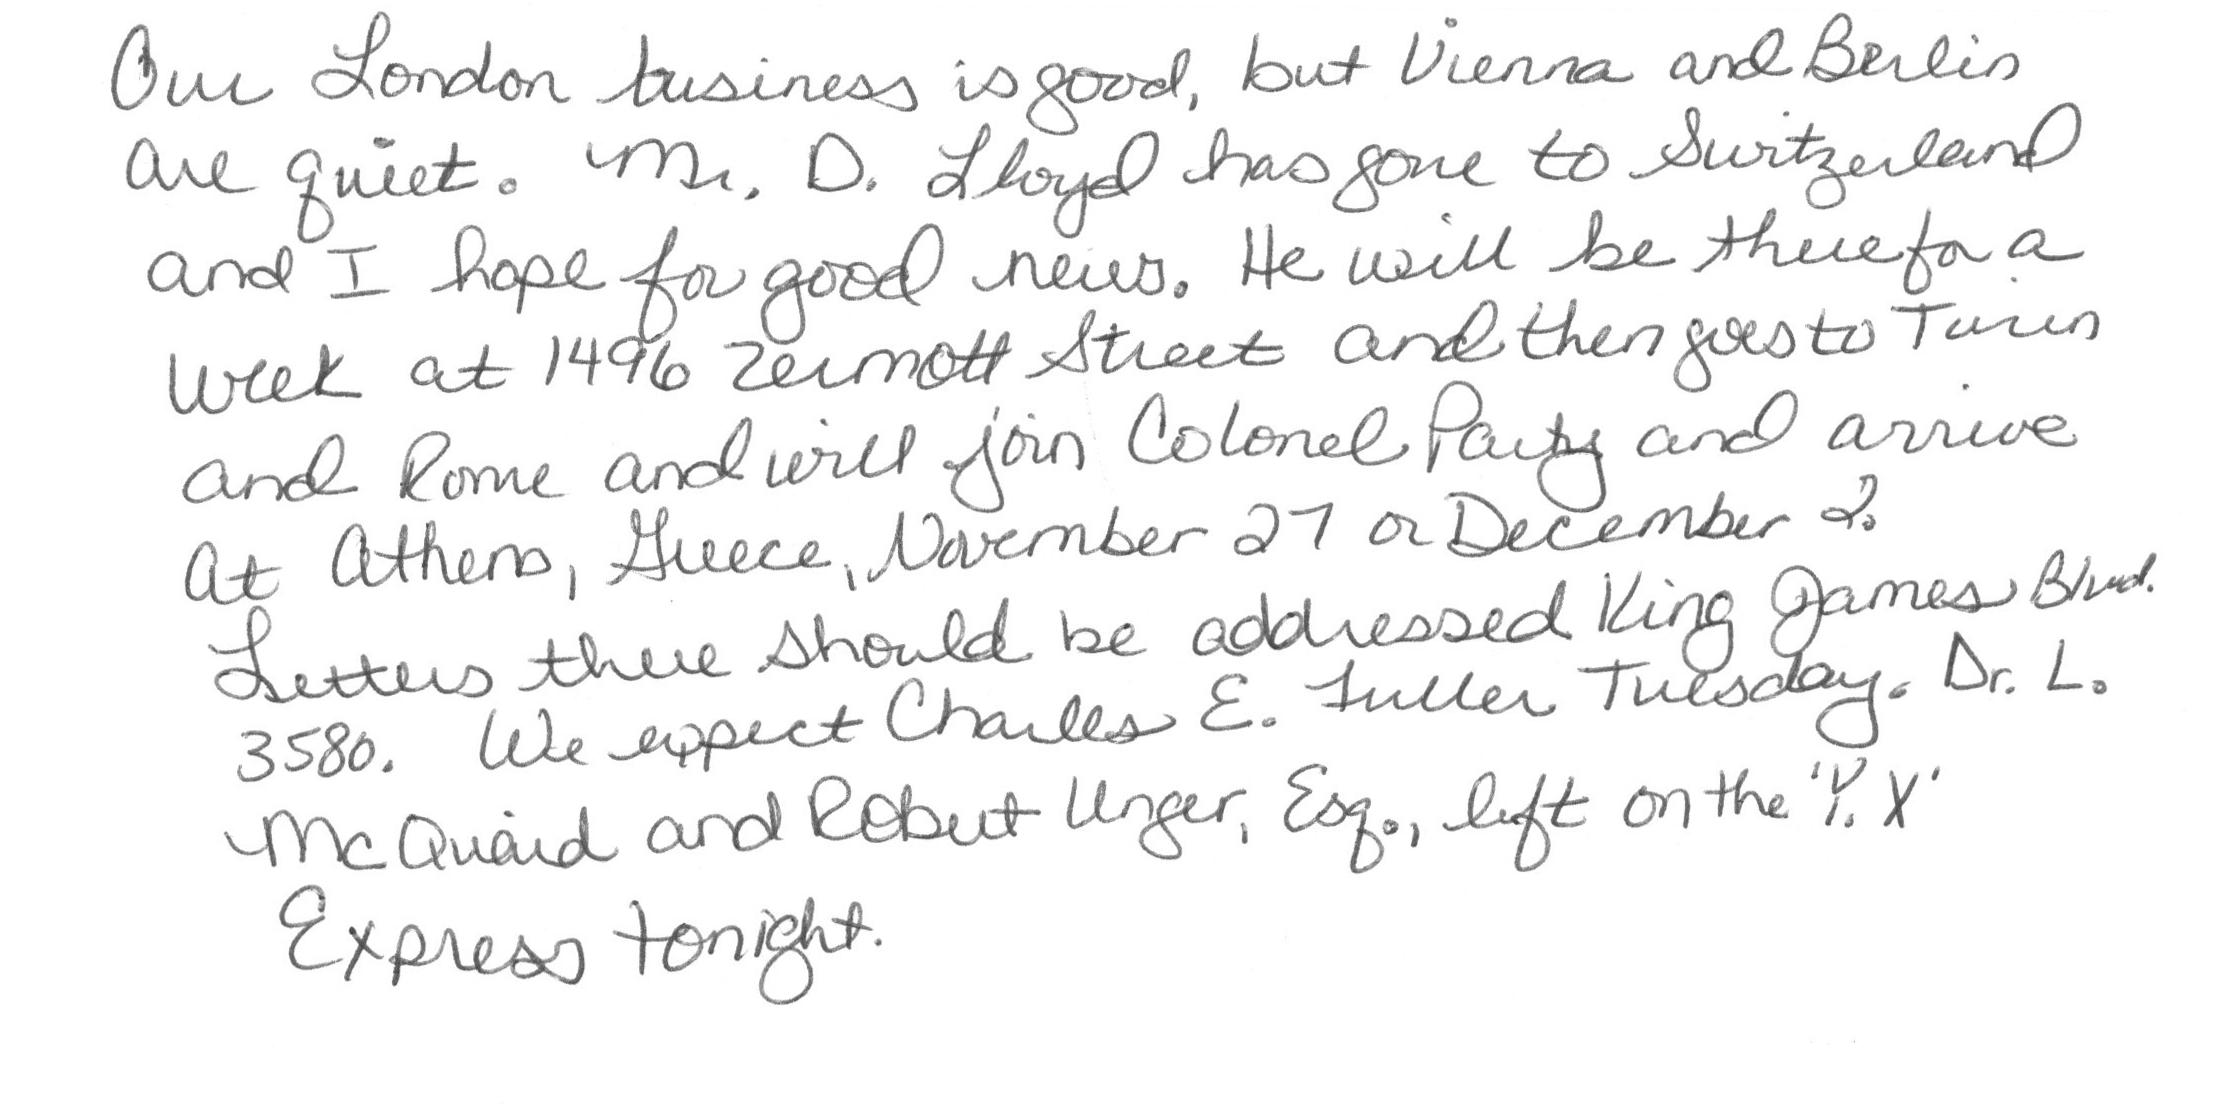 Our London business is good, but Vienna and Berlin
are quiet. Mr. D. Lloyd has gone to Switzerland
and I hope for good news. He will be there for a
week at 1496 Zermott Street and then goes to Turin
and Rome and will join Colonel Parry and arrive
at Athens, Greece, November 27 or December 2.
Letters there should be addressed King James Blvd.
3580. We expect Charles E. Fuller Tuesday. Dr. L.
McQuaid and Robert Unger, Esq., left on the 'Y. X'
Express tonight.